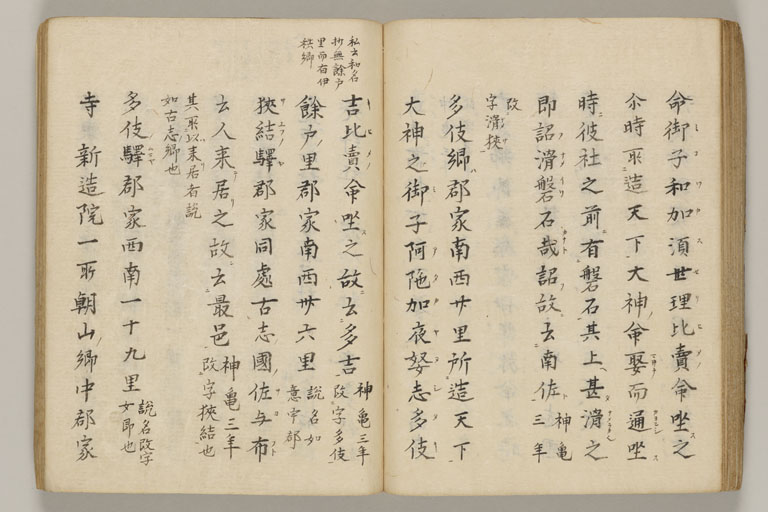 命御子和加須世理比賣命坐之
尒時所造天下大神命娶而通坐
時彼社之前有磐石其上甚滑之
即詔滑磐石哉詔故云南佐神亀三年
改字滑狭
多伎郷郡家南西廾里所造天下
大神之御子阿陁加夜努志多伎
吉比賣命坐之故云多吉神亀三年改字多伎
私云和名
抄無餘戸
里而有伊
秩郷
餘戸里郡家南西卅六里説名如意宇郡
狭結驛郡家同處古志國佐与布
云人来居之故云最邑神亀三年改字狭結也
其所以来居者説
如古志郷也
多伎驛郡家西南一十九里説名改字女即也
寺新造院一所朝山郷中郡家